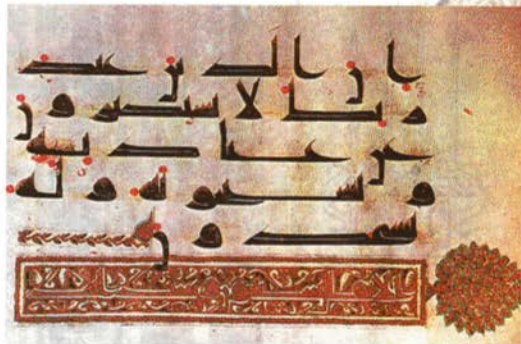 ان الذين عند
ربك لا يستكبرون
عن عبادته
ويسبحونه وله
يسجدون